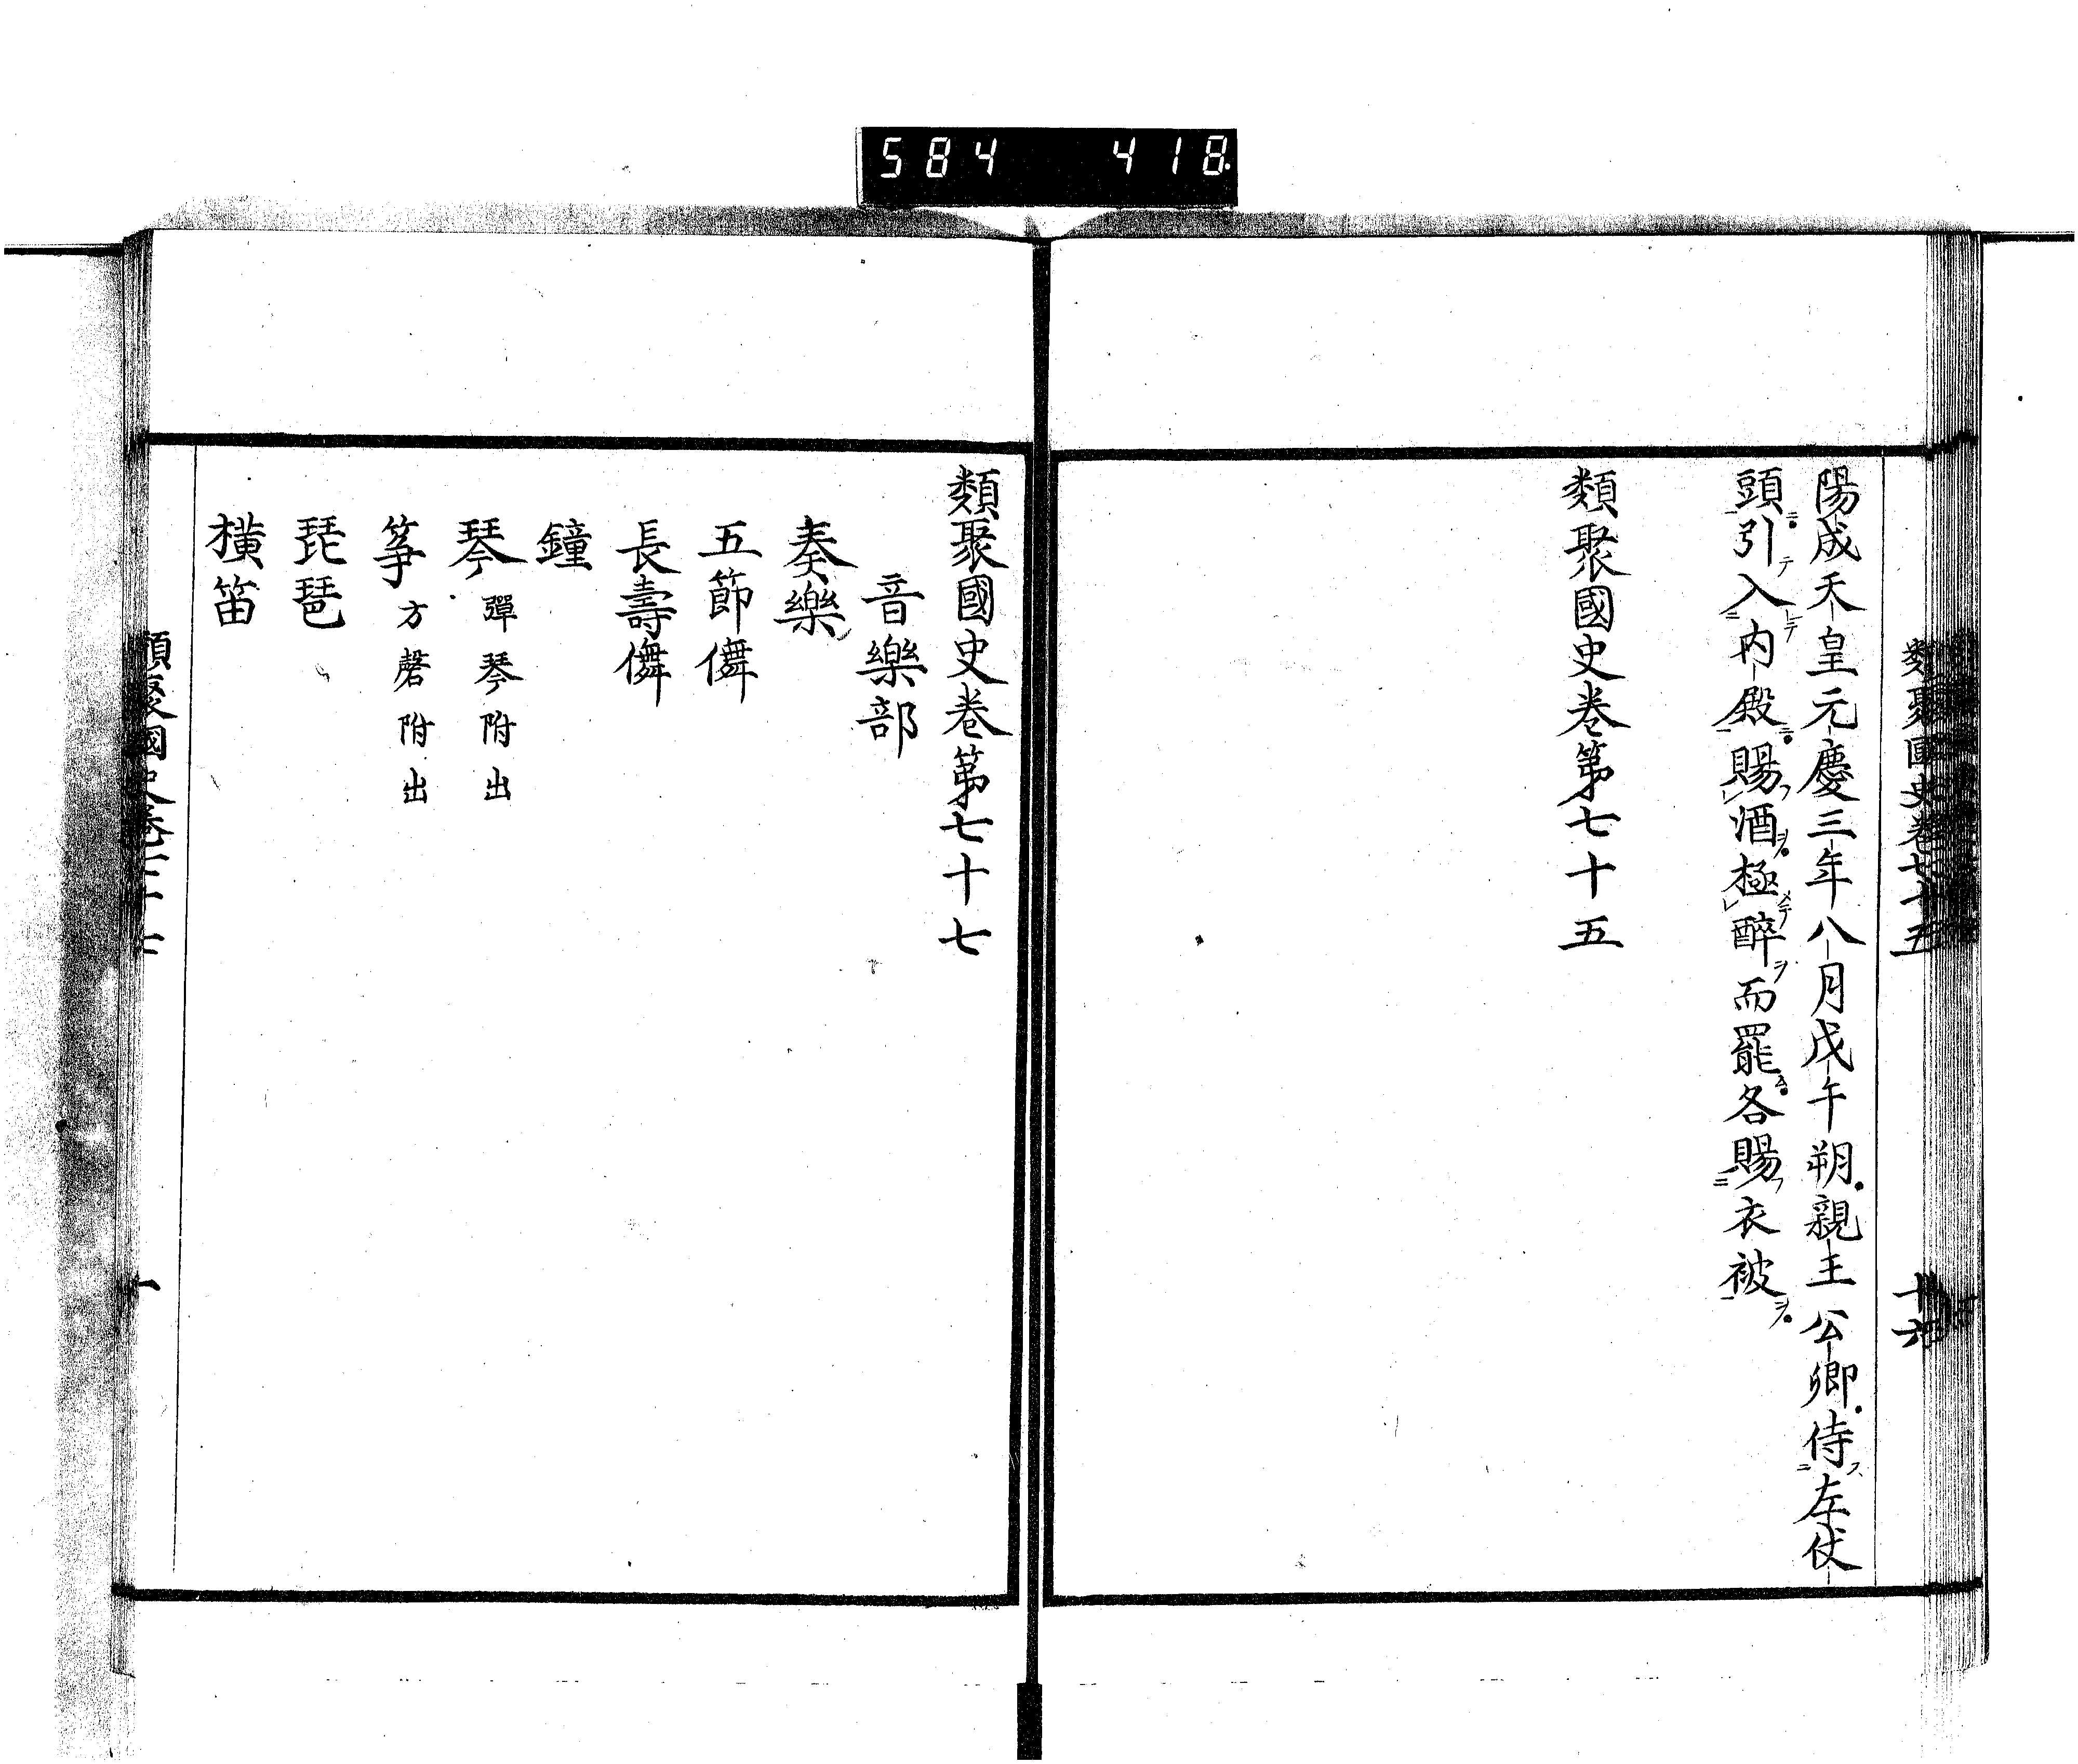 584 418
類聚國史卷七十五 十六
陽成天皇元慶三年八月戊午朔親王公卿侍左仗
頭引入内殿賜酒極醉而罷各賜衣被
類聚國史卷第七十五
類聚國史卷第七十七
音樂部
奏樂
五節儛
長壽儛
鐘
琴 彈琴附出
筝 方磬附出
琵琶
橫笛
類聚國史卷七十七 一